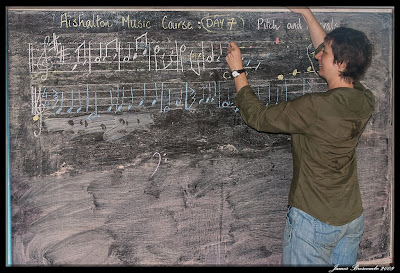 Aishalton Music Course : (DAY 7) Pitch and
James Broscombe 2009